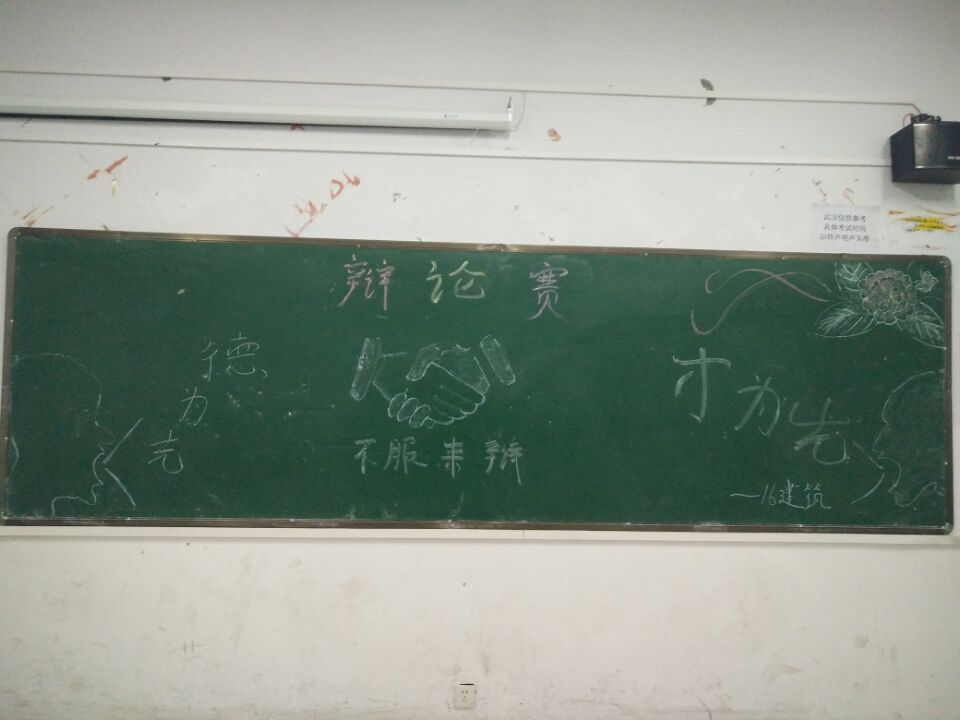 此表仅供参考
具体考试时间
以铃声哨声为准
辩论赛
德为先
不服来辩
才为先
—16建筑